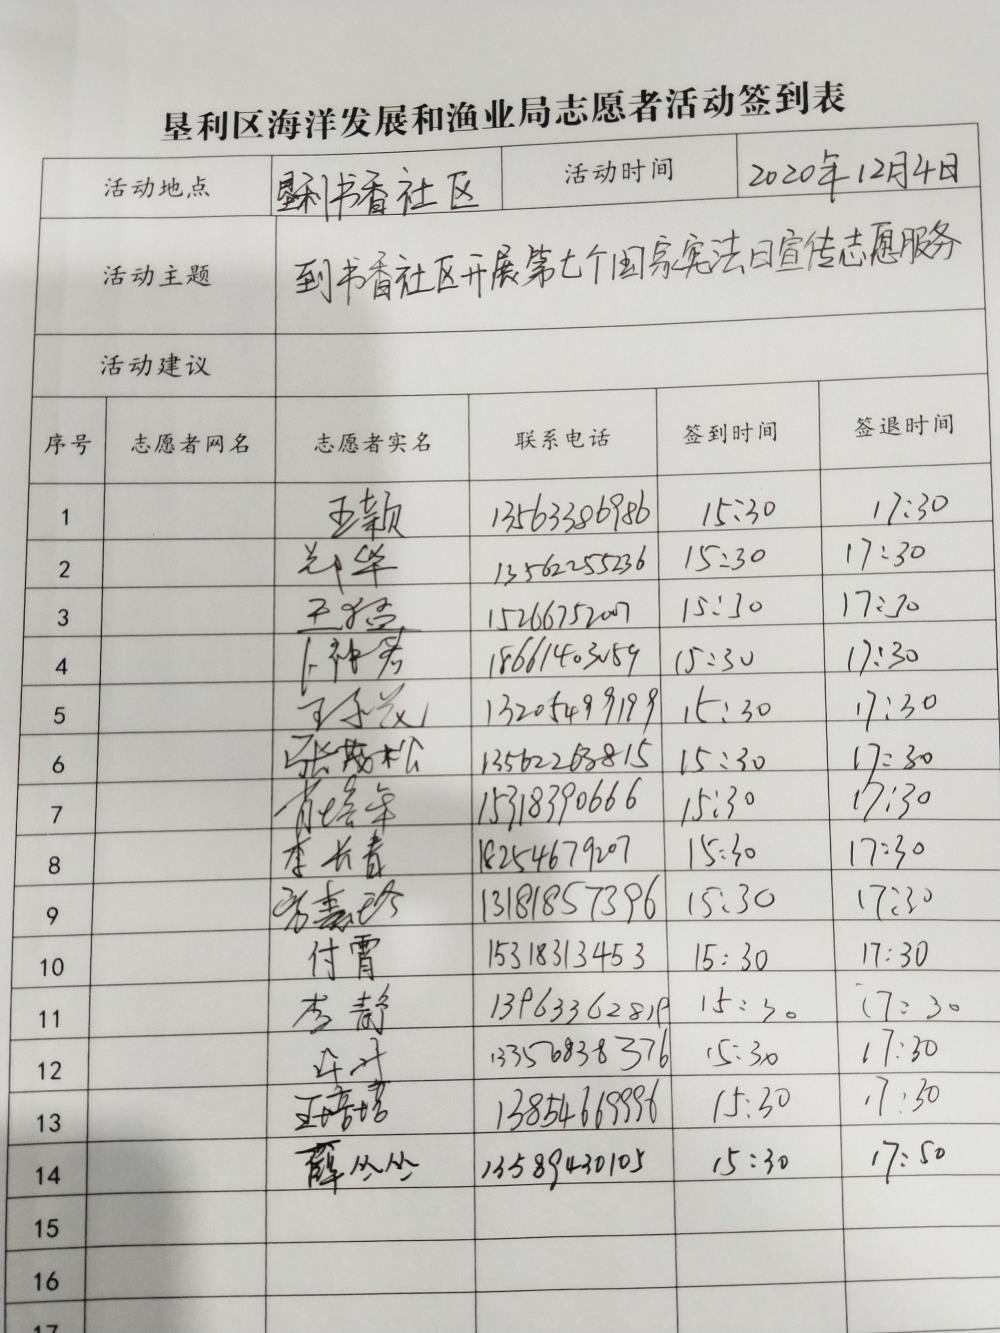 垦利区海洋发展和渔业局志愿者活动签到表
活动地点 垦利书香社区 活动时间 2020年12月4日
活动主题 到书香社区开展第七个国家宪法日宣传志愿服务
活动建议
序号 志愿者网名 志愿者实名 联系电话 签到时间 签退时间
1 王颖 13563386986 15:30 17:30
2 郑华 13562255236 15:30 17:30
3 王猛 15266752007 15:30 17:30
4 18661403059 15:30 17:30
5 13205499199 15:30 17:30
6 张茂松 13562263815 15:30 17:30
7 肖培年 15318390666 15:30 17:30
8 李长青 18254679207 15:30 17:30
9 13181857396 15:30 17:30
10 付霄 15318313453 15:30 17:30
11 李静 13963362819 15:30 17:30
12 13356838376 15:30 17:30
13 王培培 13854669996 15:30 17:30
14 薛丛丛 13589430105 15:30 17:50
15
16
17